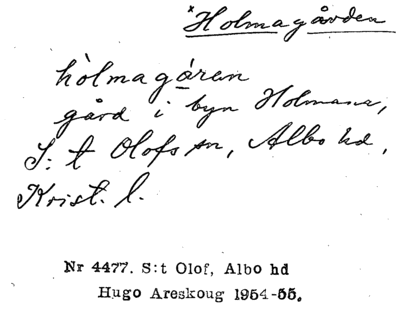 *Holmagården
hòlmagáren
gård i byn Holmana,
S:t Olofs sn, Albo hd,
Krist. l.
Nr 4477. S:t Olof, Albo hd
Hugo Areskoug 1954-55.